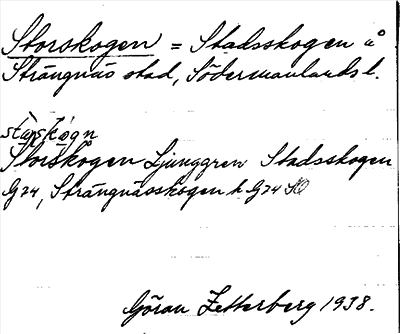 Storskogen = Stadsskogen å
Strängnäs stad, Södermanlands l.
Storskogen Ljunggren Stadsskogen
G24, Strängnässkogen k G24 SO
Göran Zetterberg 1938.